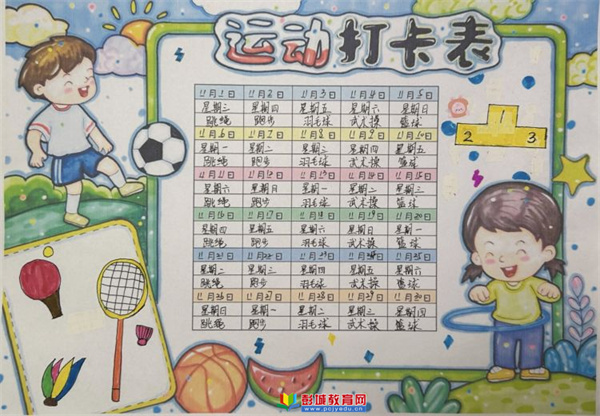 运动打卡表
11月1日 11月2日 11月3日 11月4日 11月5日
星期三 星期四 星期五 星期六 星期日
跳绳 跑步 羽毛球 武术操 篮球
11月6日 11月7日 11月8日 11月9日 11月10日
星期一 星期二 星期三 星期四 星期五
跳绳 跑步 羽毛球 武术操 篮球
11月11日 11月12日 11月13日 11月14日 11月15日
星期六 星期日 星期一 星期二 星期三
跳绳 跑步 羽毛球 武术操 篮球
11月16日 11月17日 11月18日 11月19日 11月20日
星期四 星期五 星期六 星期日 星期一
跳绳 跑步 羽毛球 武术操 篮球
11月21日 11月22日 11月23日 11月24日 11月25日
星期二 星期三 星期四 星期五 星期六
跳绳 跑步 羽毛球 武术操 篮球
11月26日 11月27日 11月28日 11月29日 11月30日
星期日 星期一 星期二 星期三 星期四
跳绳 跑步 羽毛球 武术操 篮球
1
2 3
彭城教育网
www.pcjyedu.cn